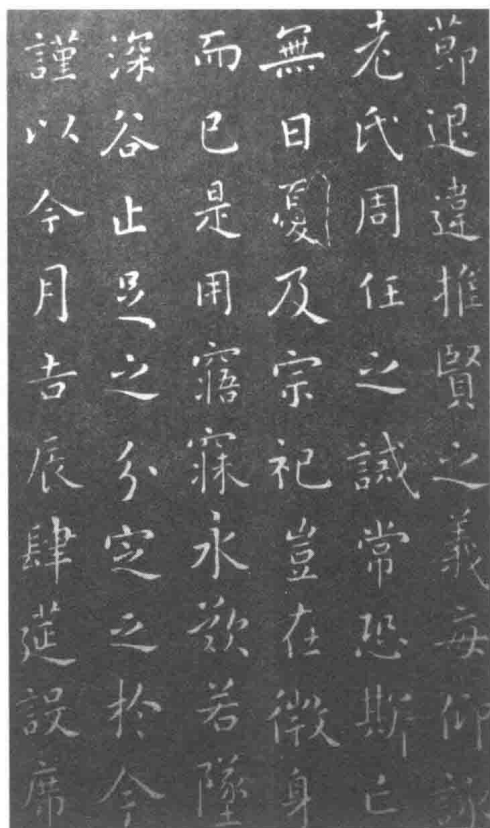 節退違推賢之義每仰詠
老氏周任之誡常恐斯亡
無日憂及宗祀豈在微身
而已是用寤寐永歎若墜
深谷止足之分定之於今
謹以今月吉辰肆筵設席